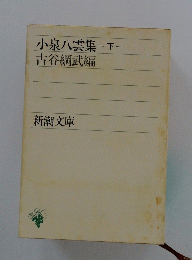 小泉八雲集 -下-
古谷綱武編
新潮文庫